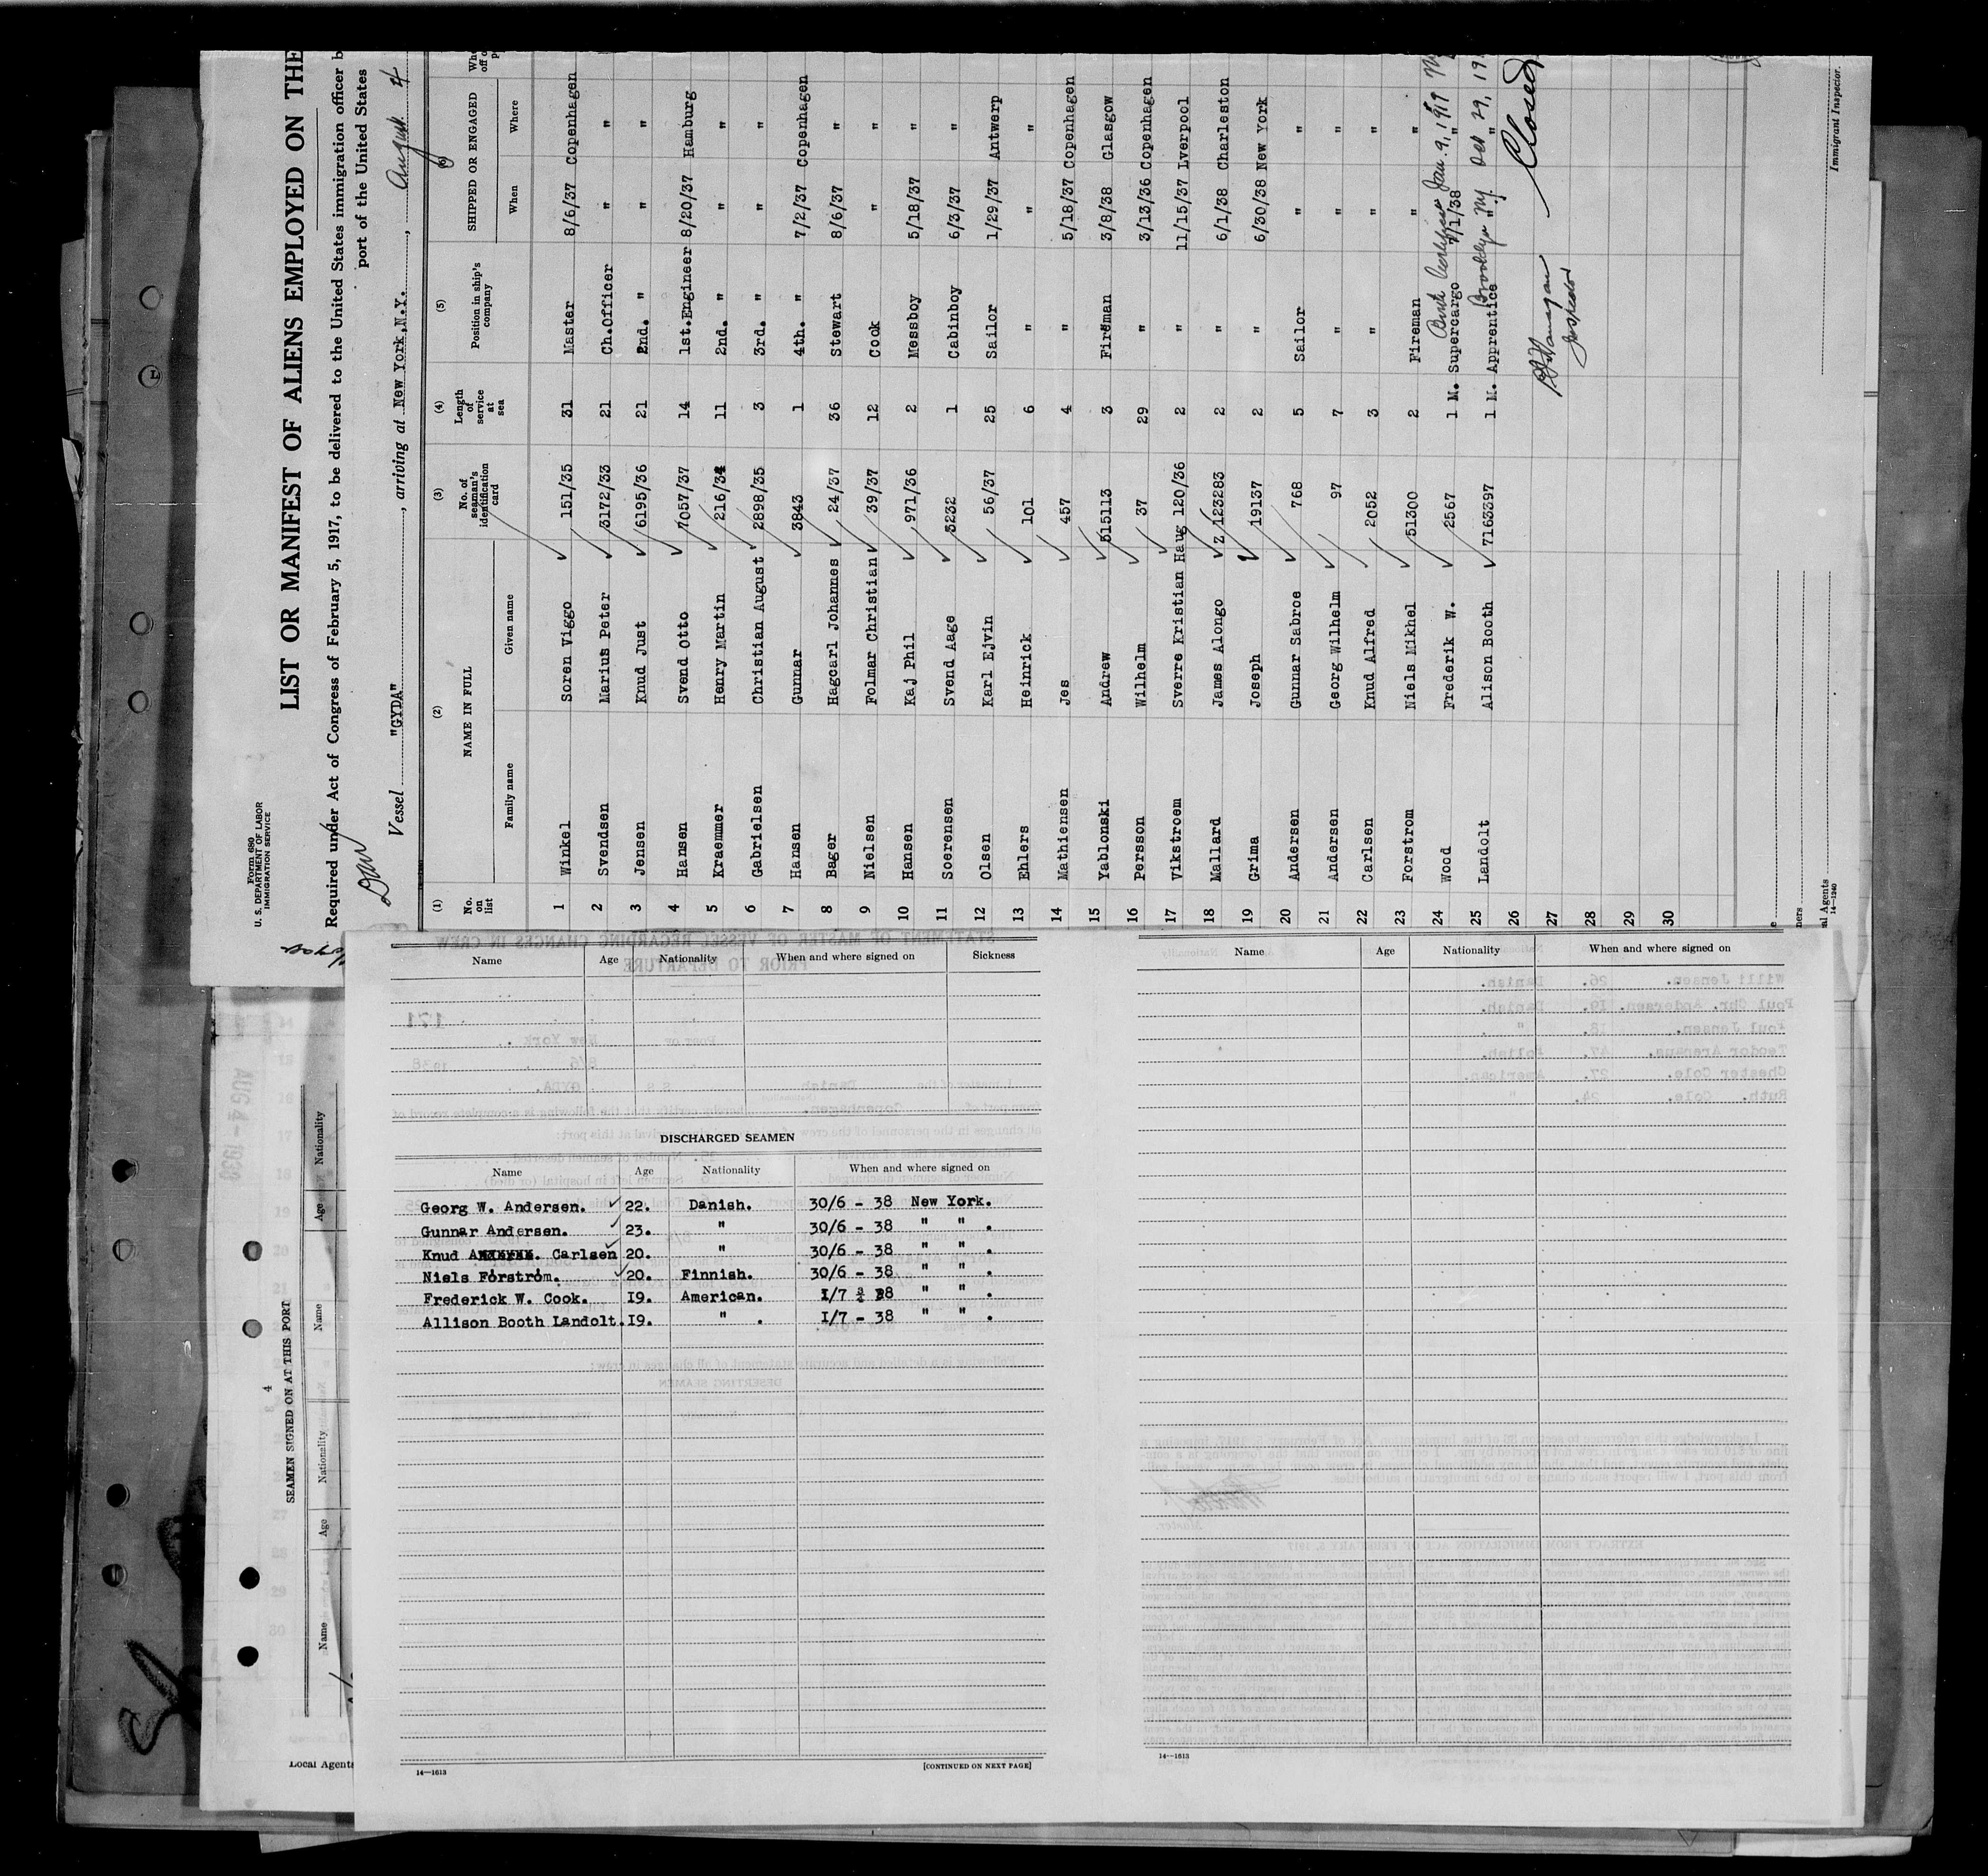 Form 680
U. S. DEPARTMENT OF LABOR
IMMIGRATION SERVICE
LIST OR MANIFEST OF ALIENS EMPLOYED ON THE
Required under Act of Congress of February 5, 1917, to be delivered to the United States immigration officer b
port of the United States
Dan
Vessel "GYDA", arriving at New York, N.Y., August 4
(1) (2) (3) (4) (5)
No. on list NAME IN FULL No. of seaman's identification card Length of service at sea Position in ship's company SHIPPED OR ENGAGED
Family name Given name When Where
1 Winkel Soren Viggo 151/35 31 Master 8/6/37 Copenhagen
2 Svendsen Marius Peter 3172/33 21 Ch.Officer " "
3 Jensen Knud Just 6195/36 21 2nd. " " "
4 Hansen Svend Otto 7057/37 14 1st.Engineer 8/20/37 Hamburg
5 Kraemmer Henry Martin 216/34 11 2nd. " " "
6 Gabrielsen Christian August 2898/35 3 3rd. " " "
7 Hansen Gunnar 3843 1 4th. " 7/2/37 Copenhagen
8 Bager Hagearl Johannes 24/37 36 Stewart 8/6/37 "
9 Nielsen Folmar Christian 39/37 12 Cook " "
10 Hansen Kaj Phil 971/36 2 Messboy 5/18/37 "
11 Soerensen Svend Aage 3232 1 Cabinboy 6/3/37 "
12 Olsen Karl Ejvin 56/37 25 Sailor 1/29/37 Antwerp
13 Ehlers Heinrick 101 6 " " "
14 Mathiensen Jes 457 4 " 5/18/37 Copenhagen
15 Yablonski Andrew 515113 3 Fireman 3/8/38 Glasgow
16 Persson Wilhelm 37 29 " 3/13/36 Copenhagen
17 Vikstroem Sverre Kristian Haug 120/36 2 " 11/15/37 Lverpool
18 Mallard James Alongo Z 123283 2 " 6/1/38 Charleston
19 Grima Joseph 19137 2 " 6/30/38 New York
20 Andersen Gunnar Sabroe 768 5 Sailor " "
21 Andersen Georg Wilhelm 97 7 " " "
22 Carlsen Knud Alfred 2052 3 " " "
23 Forstrom Niels Mikhel 51300 2 Fireman " "
24 Wood Frederik W. 2567 1 M. Supercargo 7/1/38 "
Birth Certificate Jan. 9, 1919 Ny
25 Landolt Alison Booth 7163397 1 M. Apprentice " "
Brooklyn Ny Oct 29, 19
26
27
Inspector
Closed
28
29
30
Immigrant Inspector.
al Agents
14—1240
Name Age Nationality When and where signed on Sickness
DISCHARGED SEAMEN
Name Age Nationality When and where signed on
Georg W. Andersen. 22. Danish. 30/6 - 38 New York.
Gunnar Andersen. 23. " 30/6 - 38 " " .
Knud A. Carlsen 20. " 30/6 - 38 " " .
Niels Forstrom. 20. Finnish. 30/6 - 38 " " .
Frederick W. Cook. I9. American. I/7 - 38 " " .
Allison Booth Landolt. I9. " . I/7 - 38 " " .
14—1613
[CONTINUED ON NEXT PAGE]
Name Age Nationality When and where signed on
14—1613
SEAMEN SIGNED ON AT THIS PORT
Name Age Nationality Name Age Nationality
Local Agents
AUG 4 - 1938